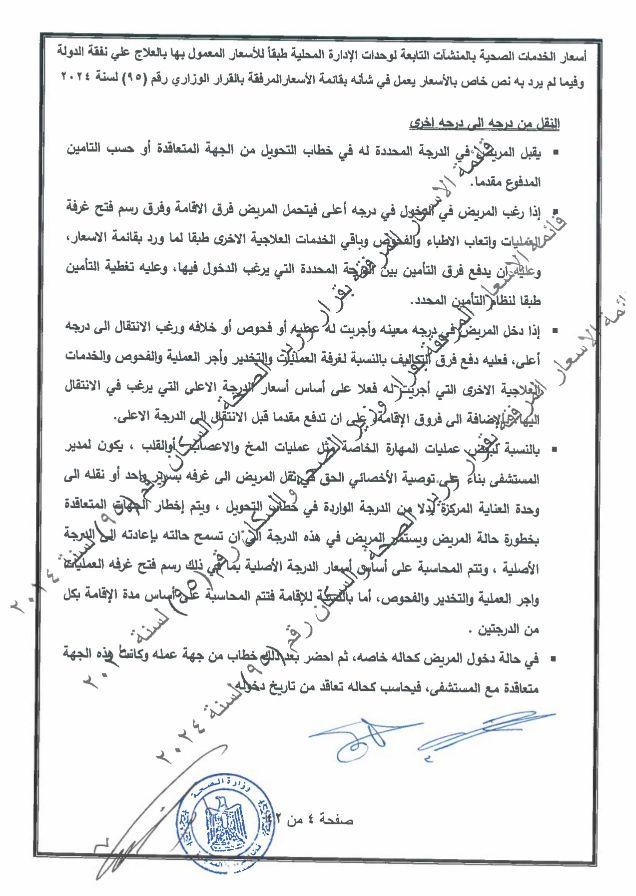 أسعار الخدمات الصحية بالمنشآت التابعة لوحدات الإدارة المحلية طبقاً للأسعار المعمول بها بالعلاج علي نفقة الدولة
وفيما لم يرد به نص خاص بالأسعار يعمل في شأنه بقائمة الأسعارالمرفقة بالقرار الوزاري رقم (٩٥) لسنة ٢٠٢٤
النقل من درجه الى درجه اخرى
▪ يقبل المريض في الدرجة المحددة له في خطاب التحويل من الجهة المتعاقدة أو حسب التامين
المدفوع مقدما.
▪ إذا رغب المريض في الدخول في درجه أعلى فيتحمل المريض فرق الاقامة وفرق رسم فتح غرفة
العمليات واتعاب الاطباء والفحوص وباقي الخدمات العلاجية الاخرى طبقا لما ورد بقائمة الاسعار،
وعليه ان يدفع فرق التأمين بين الدرجة المحددة التي يرغب الدخول فيها، وعليه تغطية التأمين
طبقا لنظام التأمين المحدد.
▪ إذا دخل المريض في درجه معينه وأجريت له عمليه أو فحوص أو خلافه ورغب الانتقال الى درجه
أعلى، فعليه دفع فرق التكاليف بالنسبة لغرفة العمليات والتخدير وأجر العملية والفحوص والخدمات
العلاجية الاخرى التي أجريت له فعلا على أساس أسعار الدرجة الاعلى التي يرغب في الانتقال
اليها بالإضافة الى فروق الإقامة، على ان تدفع مقدما قبل الانتقال الى الدرجة الاعلى.
▪ بالنسبة لبعض عمليات المهارة الخاصة مثل عمليات المخ والاعصاب والقلب ، يكون لمدير
المستشفى بناء على توصية الأخصائي الحق في نقل المريض الى غرفه بسرير واحد أو نقله الى
وحدة العناية المركزة بدلا من الدرجة الواردة في خطاب التحويل ، ويتم إخطار الجهات المتعاقدة
بخطورة حالة المريض ويستمر المريض في هذه الدرجة الى ان تسمح حالته بإعادته الى الدرجة
الأصلية ، وتتم المحاسبة على أساس أسعار الدرجة الأصلية بما في ذلك رسم فتح غرفه العمليات
واجر العملية والتخدير والفحوص، أما بالنسبة للإقامة فتتم المحاسبة على أساس مدة الإقامة بكل
من الدرجتين .
▪ في حالة دخول المريض كحاله خاصه، ثم احضر بعد ذلك خطاب من جهة عمله وكانت هذه الجهة
متعاقدة مع المستشفى، فيحاسب كحاله تعاقد من تاريخ دخوله.
قائمة الاسعار المرفقة بقرار وزير الصحة والسكان رقم (٩٥) لسنة ٢٠٢٤
قائمة الاسعار المرفقة بقرار وزير الصحة والسكان رقم (٩٥) لسنة ٢٠٢٤
ئمة الاسعار المرفقة بقرار وزير الصحة والسكان رقم (٩٥) لسنة ٢٠٢٤
وزارة الصحة
صفحة ٤ من ٤٢